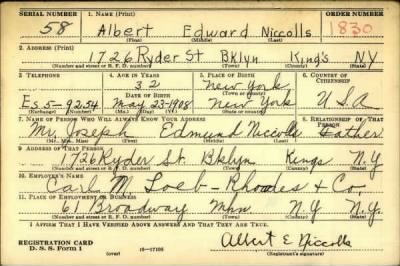 SERIAL NUMBER 1. NAME (Print) ORDER NUMBER
58 Albert Edward Niccolls 1830
(First) (Middle) (Last)
2. ADDRESS (Print)
1726 Ryder St Bklyn King's NY
(Number and street or R. F. D. number) (Town) (County) (State)
3. TELEPHONE 4. AGE IN YEARS 5. PLACE OF BIRTH 6. COUNTRY OF CITIZENSHIP
32 New York
Es 5-9254 May-23-1908 New York U.S.A
(Exchange) (Number) (Mo.) (Day) (Yr.) (State or country)
7. NAME OF PERSON WHO WILL ALWAYS KNOW YOUR ADDRESS 8. RELATIONSHIP OF THAT PERSON
Mr. Joseph Edmund Niccolls Father
(Mr., Mrs., Miss) (First) (Middle) (Last)
9. ADDRESS OF THAT PERSON
1726 Ryder St. Bklyn Kings N.Y
(Number and street or R. F. D. number) (Town) (County) (State)
10. EMPLOYER'S NAME
Carl M. Loeb-Rhoades & Co.
11. PLACE OF EMPLOYMENT OR BUSINESS
61 Broadway Mhn N.Y N.Y.
(Number and street or R. F. D. number) (Town) (County) (State)
I AFFIRM THAT I HAVE VERIFIED ABOVE ANSWERS AND THAT THEY ARE TRUE.
REGISTRATION CARD
D. S. S. Form 1 (over) 16-17105 Albert E Niccolls
(Registrant's signature)